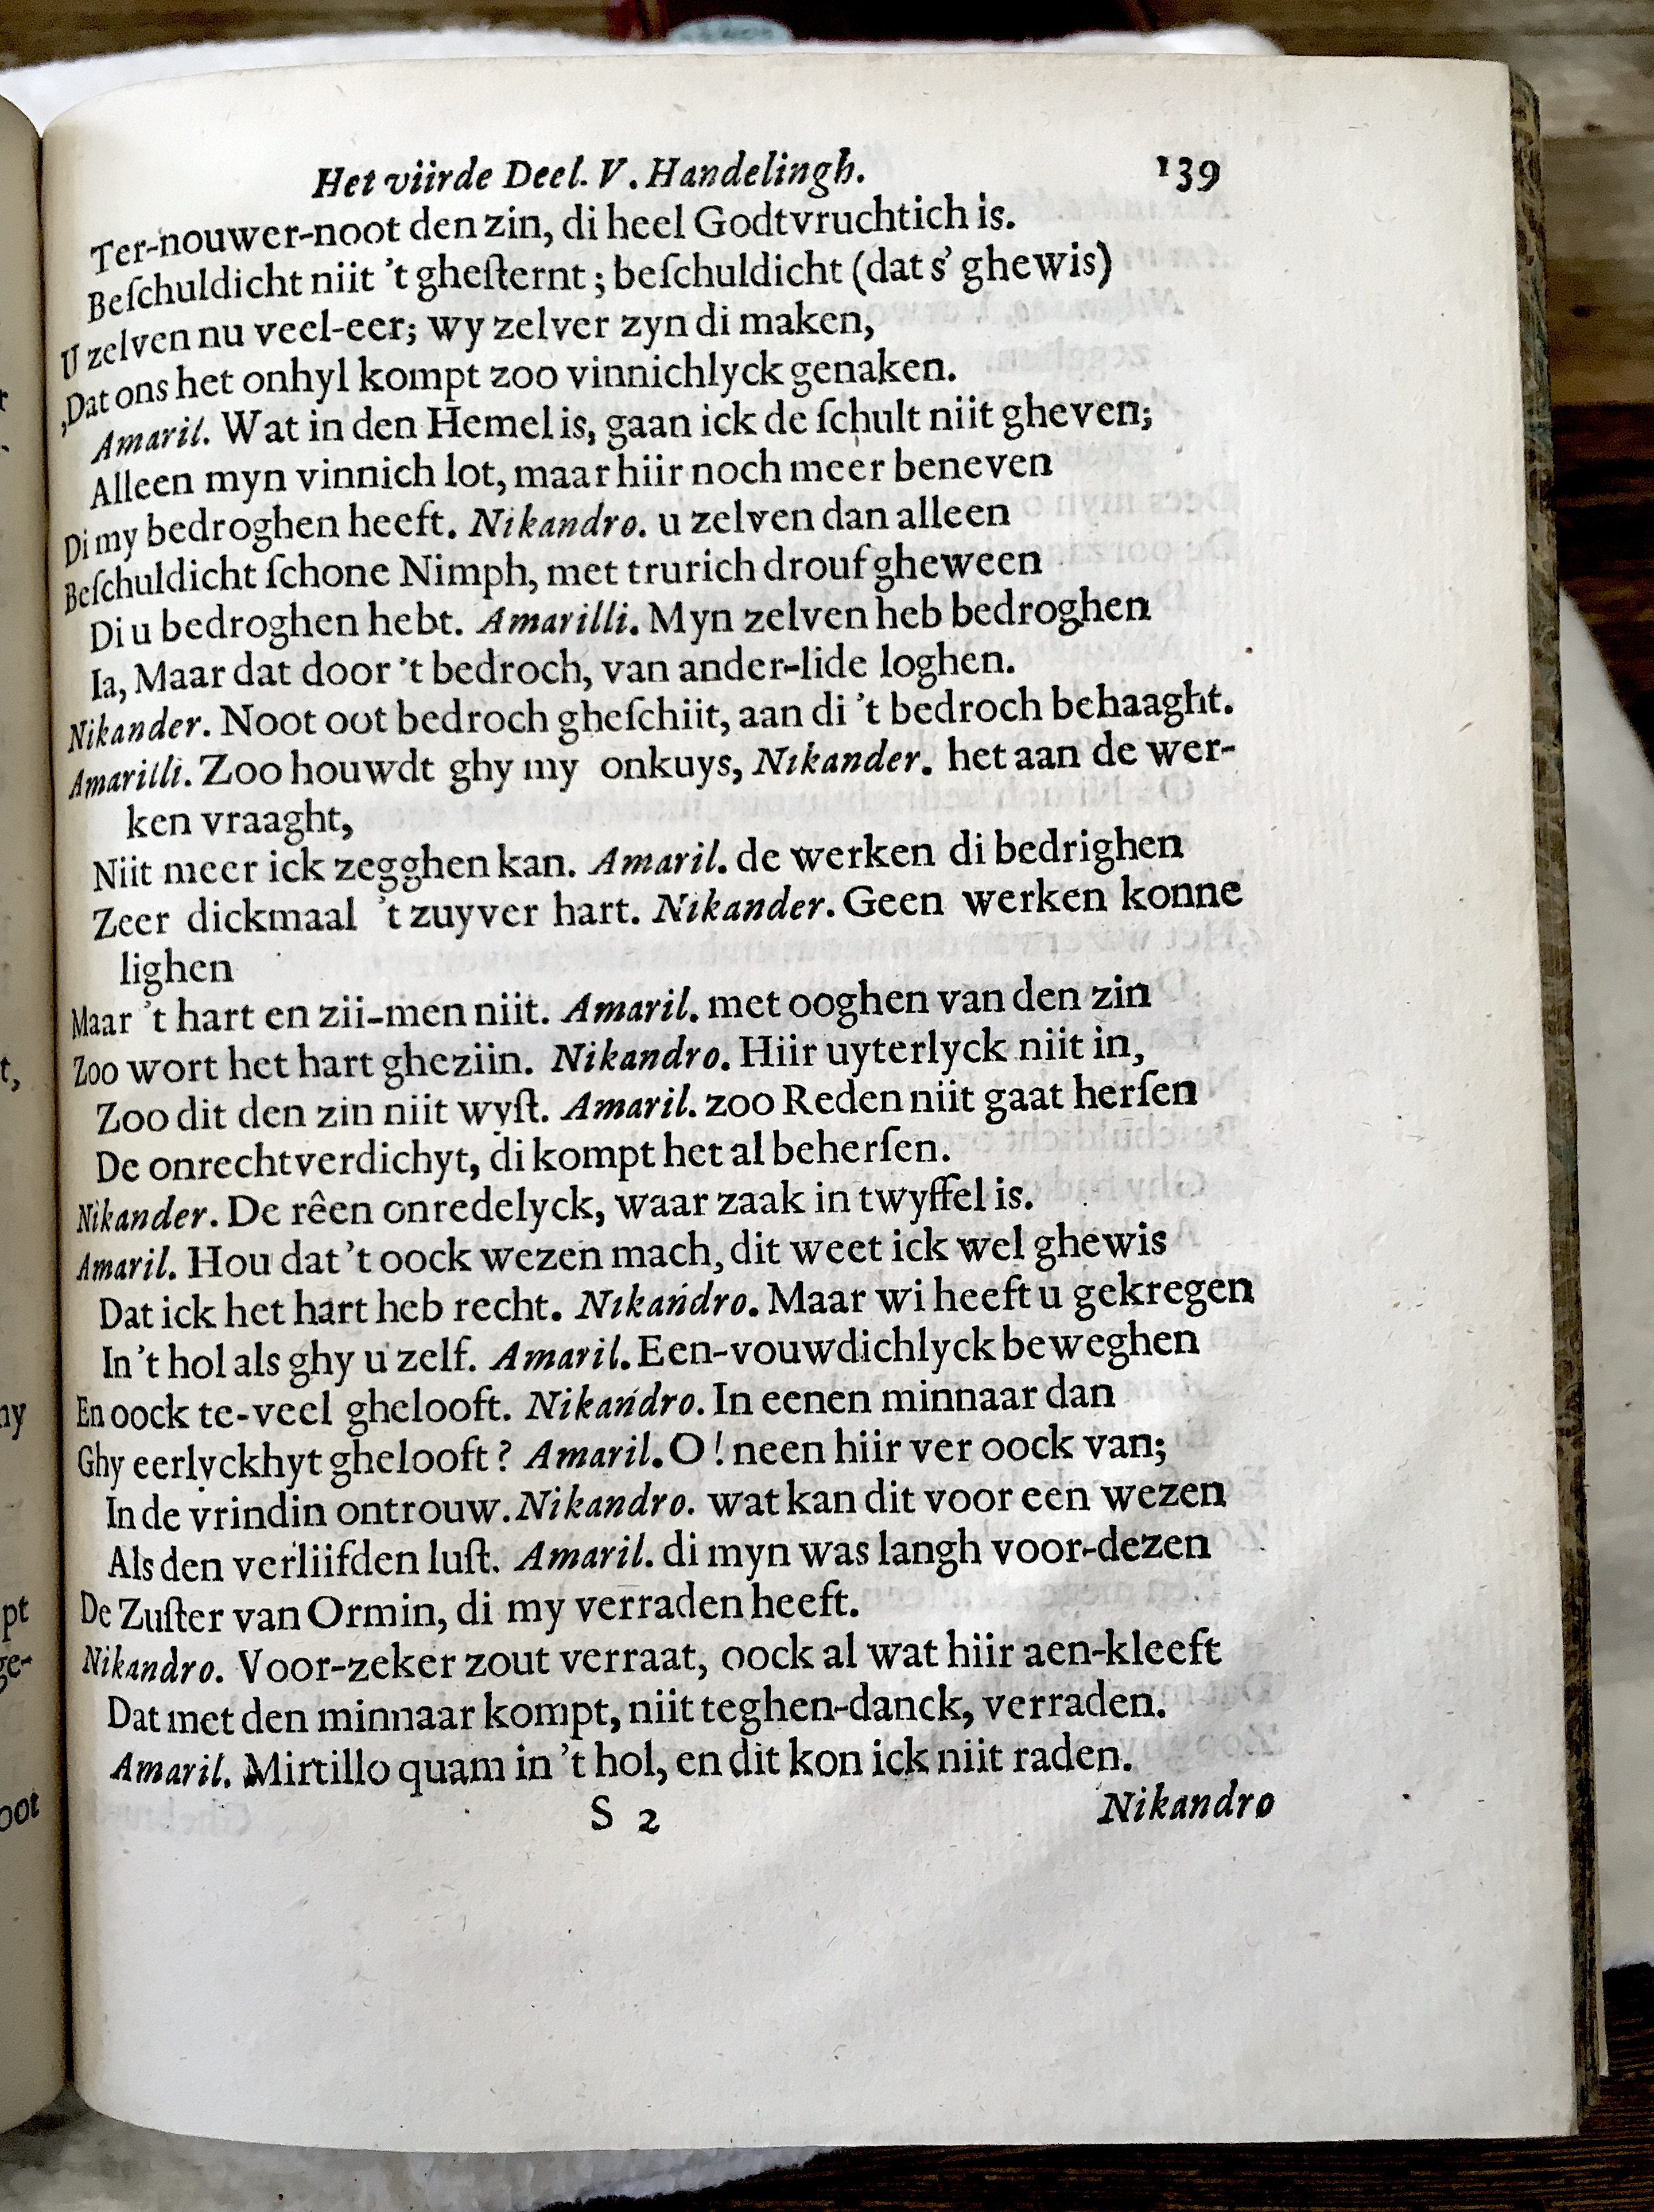 Het viirde Deel. V. Handelingh. 139
Ter-nouwer-noot den zin, di heel Godtvruchtich is.
Beſchuldicht niit 't gheſternt; beſchuldicht (dat s' ghewis)
U zelven nu veel-eer; wy zelver zyn di maken,
,Dat ons het onhyl kompt zoo vinnichlyck genaken.
Amaril. Wat in den Hemel is, gaan ick de ſchult niit gheven;
Alleen myn vinnich lot, maar hiir noch meer beneven
Di my bedroghen heeft. Nikandro. u zelven dan alleen
Beſchuldicht ſchone Nimph, met trurich drouf gheween
Di u bedroghen hebt. Amarilli. Myn zelven heb bedroghen
Ia, Maar dat door 't bedroch, van ander-lide loghen.
Nikander. Noot oot bedroch gheſchiit, aan di 't bedroch behaaght.
Amarilli. Zoo houwdt ghy my onkuys, Nikander. het aan de wer-
ken vraaght,
Niit meer ick zegghen kan. Amaril. de werken di bedrighen
Zeer dickmaal 't zuyver hart. Nikander. Geen werken konne
lighen
Maar 't hart en zii-men niit. Amaril. met ooghen van den zin
Zoo wort het hart gheziin. Nikandro. Hiir uyterlyck niit in,
Zoo dit den zin niit wyſt. Amaril. zoo Reden niit gaat herſen
De onrechtverdichyt, di kompt het al beherſen.
Nikander. De rêen onredelyck, waar zaak in twyffel is.
Amaril. Hou dat 't oock wezen mach, dit weet ick wel ghewis
Dat ick het hart heb recht. Nikandro. Maar wi heeft u gekregen
In 't hol als ghy u zelf. Amaril. Een-vouwdichlyck beweghen
En oock te-veel ghelooft. Nikandro. In eenen minnaar dan
Ghy eerlyckhyt ghelooft? Amaril. O! neen hiir ver oock van;
In de vrindin ontrouw. Nikandro. wat kan dit voor een wezen
Als den verliifden luſt. Amaril. di myn was langh voor-dezen
De Zuſter van Ormin, di my verraden heeft.
Nikandro. Voor-zeker zout verraat, oock al wat hiir aen-kleeft
Dat met den minnaar kompt, niit teghen-danck, verraden.
Amaril. Mirtillo quam in 't hol, en dit kon ick niit raden.
S 2 Nikandro